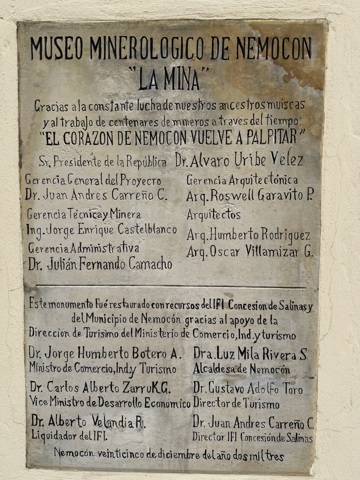 MUSEO MINEROLOGICO DE NEMOCON
"LA MINA"
Gracias a la constante lucha de nuestros ancestros muiscas
y al trabajo de centenares de mineros a traves del tiempo:
"EL CORAZON DE NEMOCON VUELVE A PALPITAR"
Sr. Presidente de la República Dr. Alvaro Uribe Velez
Gerencia General del Proyecro Gerencia Arquitectónica
Dr. Juan Andres Carreño C. Arq. Roswell Garavito P.
Gerencia Técnica y Minera Arquitectos
Ing. Jorge Enrique Castelblanco Arq. Humberto Rodriguez
Gerencia Administrativa Arq. Oscar Villamizar G.
Dr. Julián Fernando Camacho
Este monumento fué restaurado con recursos del IFI Concesión de Salinas y
del Municipio de Nemocón gracias al apoyo de la
Direccion de Turismo del Ministerio de Comercio, Ind. y turismo
Dr. Jorge Humberto Botero A. Dra. Luz Mila Rivera S
Ministro de Comercio, Ind. y Turismo Alcaldesa de Nemocón
Dr. Carlos Alberto Zarruk G. Dr. Gustavo Adolfo Toro
Vice Ministro de Desarrollo Economico Director de Turismo
Dr. Alberto Velandia R. Dr. Juan Andres Carreño C
Liquidador del IFI. Director IFI Concesión de Salinas
Nemocón veinticinco de diciembre del año dos mil tres